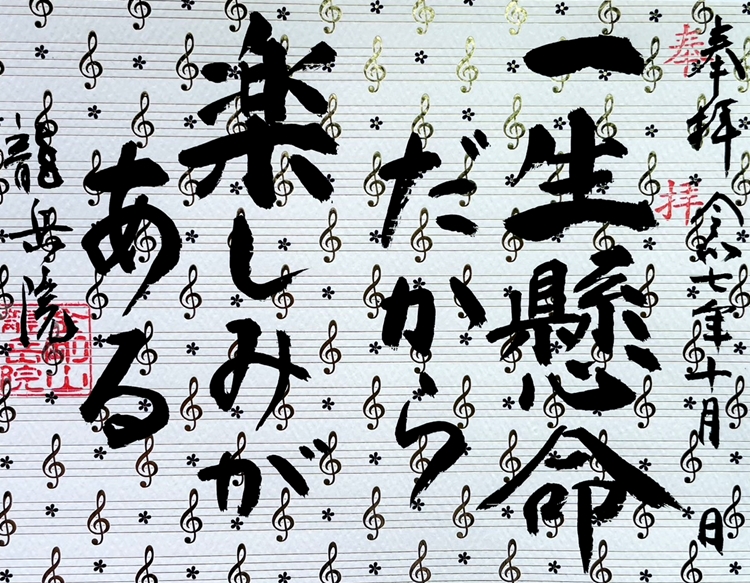 奉拝 令和七年十月 日
奉拝
一生懸命
だから
楽しみが
ある
龍岳院
金和山
龍岳院